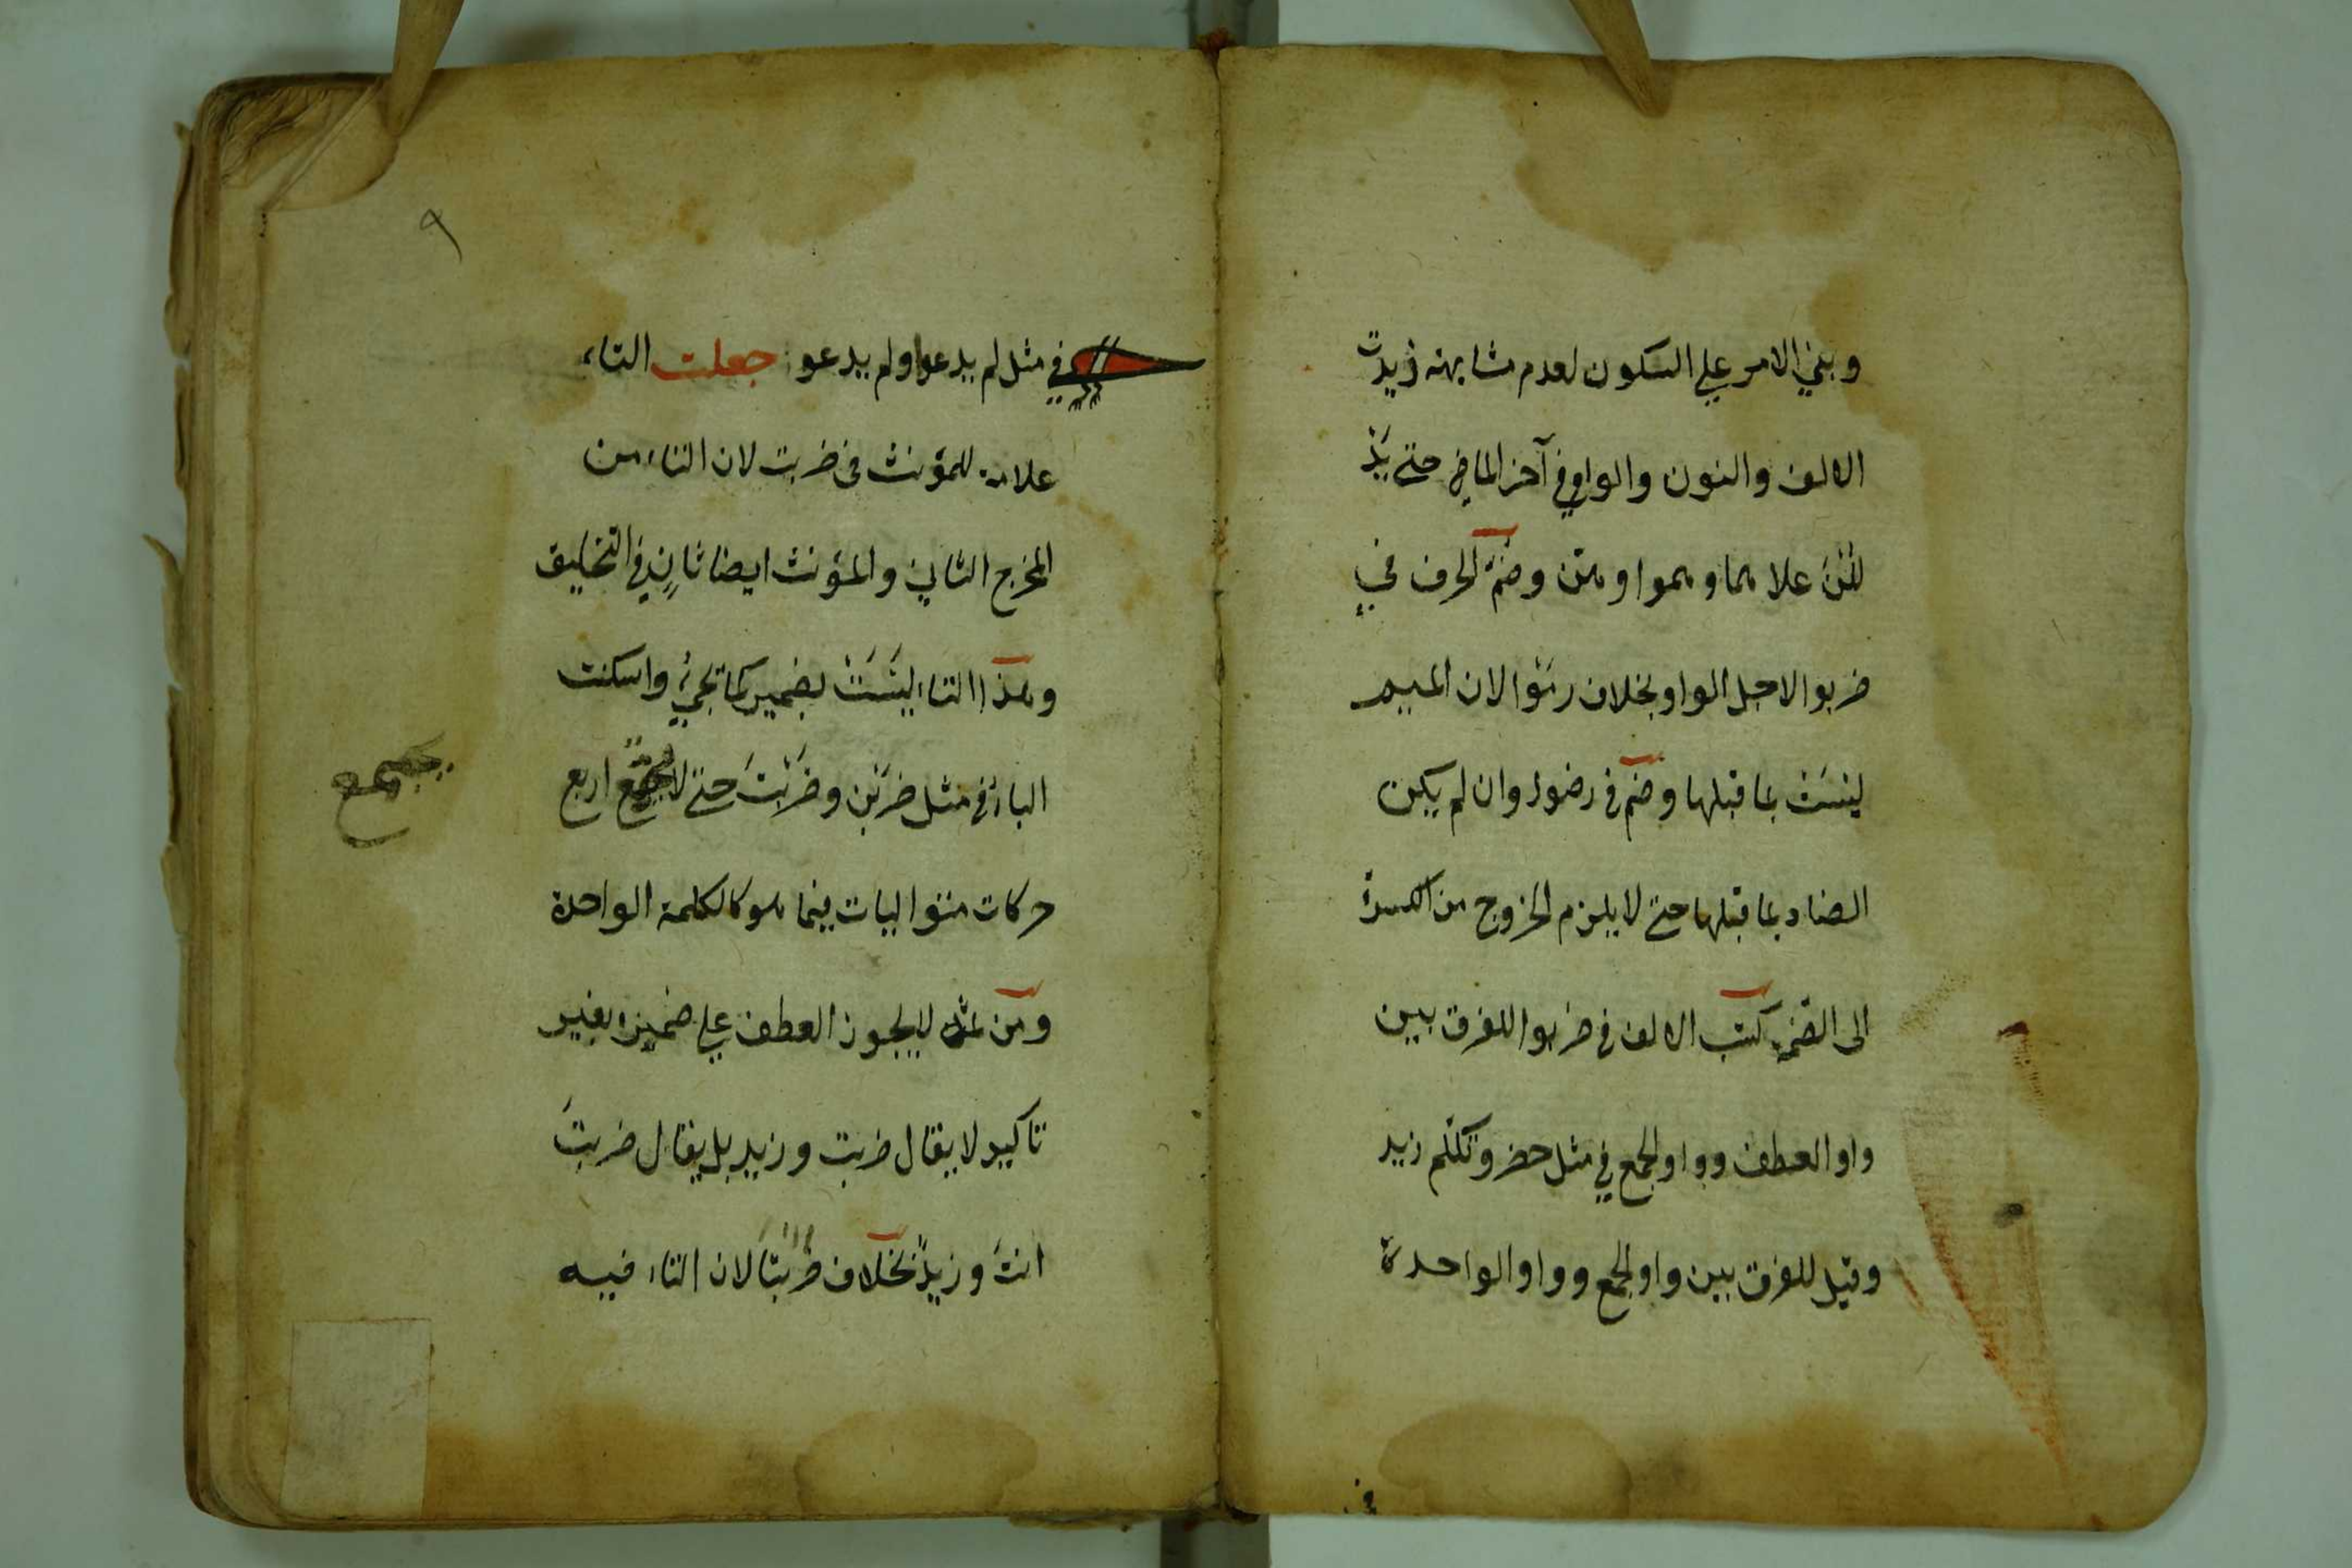 وبني الامر علي السكون لعدم مشابهته زيدت
الالف والنون والواو في آخر الماضي حتي يد
للن علا هما وهموا وهن وضم الحرف في
ضربوا لاجل الواو بخلاف رموا لان الميم
ليست بما قبلها وضم في رضوا وان لم يكن
الضاد بما قبلها حتي لا يلزم الخروج من الكسرة
الى الضمة كتب الالف في ضربوا للفرق بين
واو العطف وواو الجمع في مثل حضر وتكلم زيد
وقيل للفرق بين واو الجمع وواو الواحدة
في
٩
في مثل لم يدعوا ولم يدعو جعلت التاء
علامة للمؤنث في ضربت لان التاء من
المخرج الثاني والمؤنث ايضا ثانٍ في التخليق
وهذا التاء ليست بضمير كما تجيء واسكنت
الباء في مثل ضربن وضربت حتي لا يجتمع اربع
يجتمع
حركات متواليات فيما هو كالكلمة الواحدة
ومن ثمه لا يجوز العطف علي ضميره بغير
تاكيد لا يقال ضربت وزيد بل يقال ضربت
انت وزيد بخلاف ضربتا لان التاء فيه